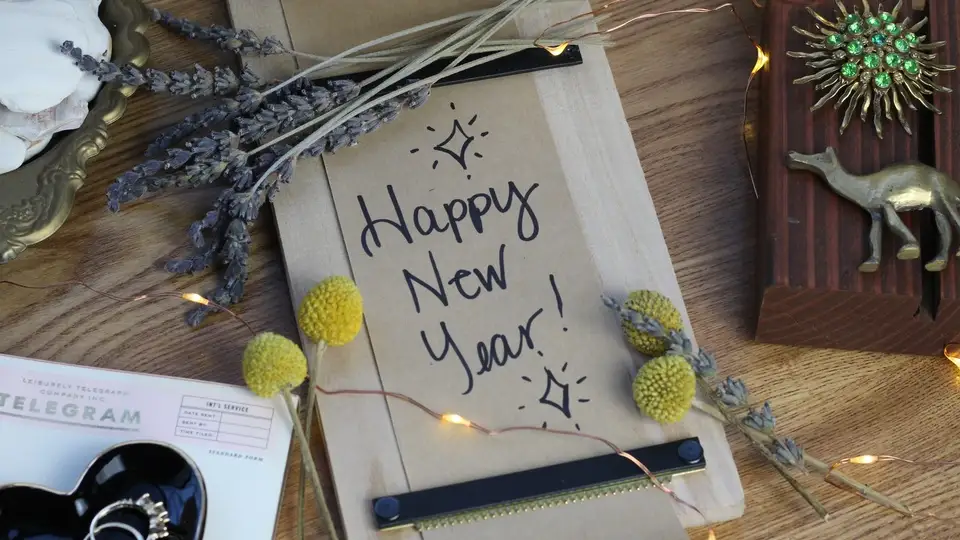 Happy
New
Year!
LEISURELY TELEGRAPH
COMPANY INC.
TELEGRAM
INT'L SERVICE
DATE SENT:
SENT BY:
TIME FILED:
STANDARD FORM